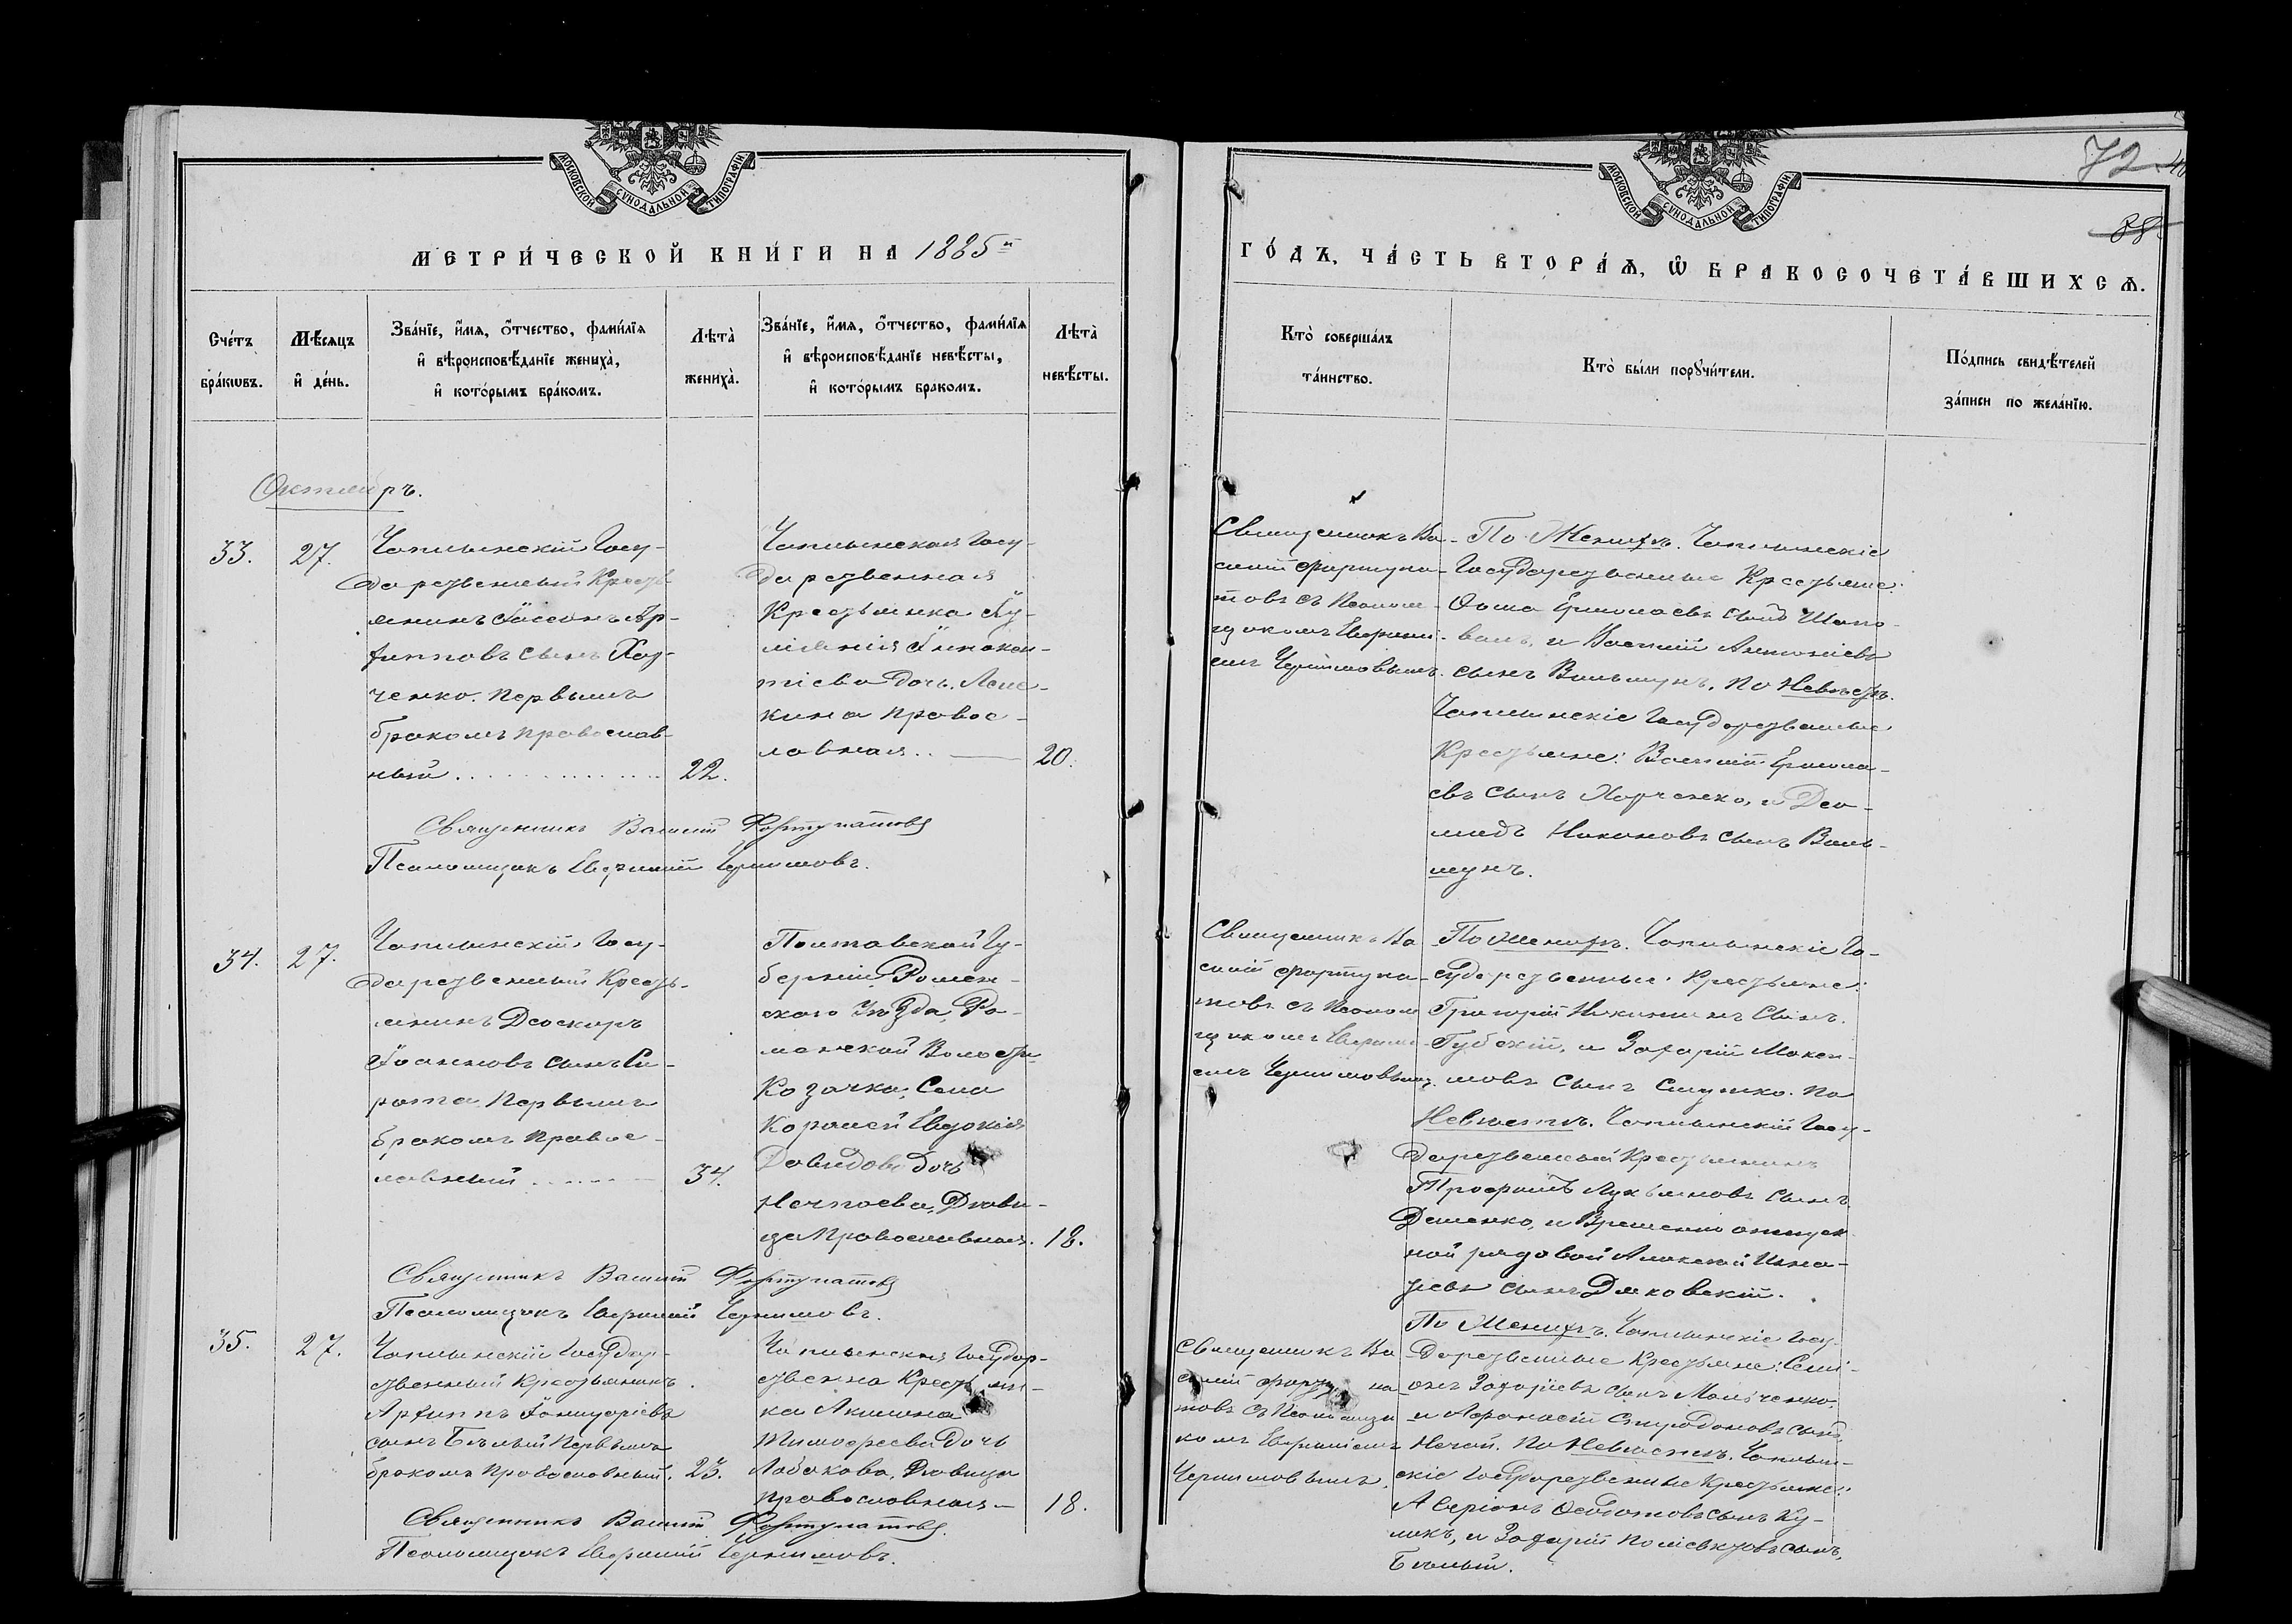 МОСКОВСКОЙ СѴНОДАЛЬНОЙ ТИПОГРАФІИ
МЕТРИ́ЧЕСКОЙ КНИ́ГИ НА 1885й
Сче́тъ бра́кѡвъ.
Мѣ́сяцъ и҆ де́нь.
Зва́нїе, и҆́мя, ѻ҆́тчество, фами́лїя
и҆ вѣроисповѣ́данїе жениха̀,
и҆ кото́рымъ бра́комъ.
Лѣта̀ жениха̀.
Зва́нїе, и҆́мя, ѻ҆́тчество, фами́лїя
и҆ вѣроисповѣ́данїе невѣ́сты,
и҆ кото́рымъ бракомъ.
Лѣта̀ невѣ́сты.
Октябрь.
33.
27.
Чаплынскій Госу-
дарственный Кресть-
янинъ Іассонъ Ар-
хипповъ сынъ Хар-
ченко. Первымъ
бракомъ православ-
ный
22.
Чаплынская Госу-
дарственная
Крестьянка Іу-
ліанія Іннокен-
тіева дочь.
православ-
ная
20.
Священникъ Василій Фортунатовъ
Псаломщикъ Евфимій Чернышовъ.
34.
27.
Чаплынскій Госу-
дарственный Кресть-
янинъ Діоскоръ
Іоанновъ сынъ Си-
рота Первымъ
бракомъ правос-
лавный
34.
Полтавской Гу-
берніи, Ромен-
скаго Уѣзда, Ро-
менской Волости
Козачка, Села
Евдокія
Давидова Дочь
Нечпаева, Дѣви-
ца Православная.
18.
Священникъ Василій Фортунатовъ
Псаломщикъ Евфимій Чернышовъ.
35.
27.
Чаплынскій Государ-
ственный Крестьянинъ
Архиппъ Іаннуаріевъ
сынъ Бѣлый Первымъ
бракомъ Православный.
23.
Чаплынская Государ-
ственна Крестьян-
ка Акилина
Тимофеева Дочь
Лобакова, Дѣвица
православная
18.
Священникъ Василій Фортунатовъ.
Псаломщикъ Евфимій Чернышовъ.
72
88
МОСКОВСКОЙ СѴНОДАЛЬНОЙ ТИПОГРАФІИ
ГО́ДЪ, ЧА́СТЬ ВТОРА́Ѧ, Ѡ҆ БРАКОСОЧЕТА́ВШИХСѦ.
Кто̀ соверша́лъ та́инство.
Кто̀ бы́ли порꙋчи́тели.
По́дпись свидѣ́телей за́писи по жела́нїю.
Священникъ Ва-
силій Фортуна-
товъ съ Псалом-
щикомъ Евфими-
емъ Чернышовымъ.
По Женихѣ. Чаплынскіе
Государственные Крестьяне:
Фома Ермолаевъ сынъ Шапо-
валъ, и Василій Антоніевъ
сынъ Вильшунъ. По Невѣстѣ.
Чаплынскіе Государственные
Крестьяне: Василій Ермола-
евъ сынъ Харченко, и Дио-
мидъ Никоновъ сынъ Виль-
шунъ.
Священникъ Ва-
силій Фортуна-
товъ съ Псалом-
щикомъ Евфими-
емъ Чернышовымъ.
По Женихѣ. Чаплынскіе Го-
сударственные Крестьяне:
Григорій Никитинъ Сынъ
Губскій, и Захарій Макси-
мовъ сынъ По
Невѣстѣ. Чаплынскій Госу-
дарственный Крестьянинъ
Трофимъ Лукьяновъ сынъ
Деменко, и Временно отпуск-
ной рядовой Алексей Игна-
тьевъ сынъ Дяковскій.
Священникъ Ва-
силій Фортуна-
товъ съ Псаломщи-
комъ Евфиміемъ
Чернышовымъ.
По Женихѣ. Чаплынскіе Госу-
дарственные Крестьяне: Симе-
онъ Захаріевъ сынъ
и Афанасій Спиридоновъ сынъ
Нечай. По Невѣстѣ. Чаплын-
скіе Государственные Крестьяне:
сынъ Ку-
ликъ, и Захарій Поліевктовъ сынъ
Бѣлый.